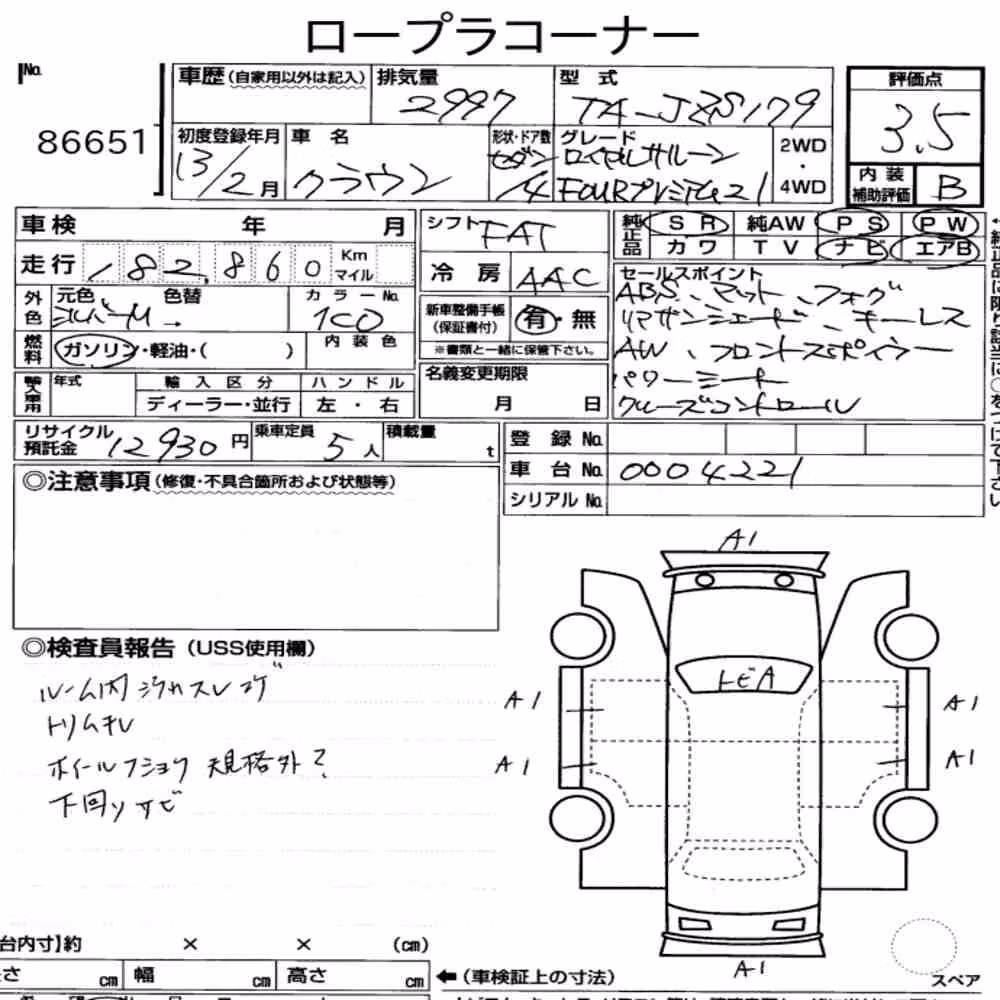 ロープラコーナー
No.
86651
車歴(自家用以外は記入)
排気量
2997
型式
TA-JZS179
評価点
3.5
初度登録年月
13/2月
車名
クラウン
形状・ドア数
セダン
/4
グレード
ロイヤルサルーン
FOURプレミアム21
2WD
・
4WD
内装
補助評価
B
車検 年 月
シフト
FAT
純正品
SR 純AW PS PW
カワ TV ナビ エアB
走行 182,860 Km
マイル
冷房
AAC
セールスポイント
ABS、マット、フォグ
リアサンシェード、キーレス
AW、フロントスポイラー
パワーシート
クルーズコントロール
外色
元色 色替
シルバーM →
カラーNo.
1C0
新車整備手帳
(保証書付)
有・無
※書類と一緒に保管下さい。
燃料
ガソリン・軽油・( )
内装色
名義変更期限
月 日
年式
輸入区分
ハンドル
ディーラー・並行
左・右
リサイクル
預託金
12930円
乗車定員
5人
積載量
t
登録No.
車台No.
0004221
シリアルNo.
◎注意事項(修復・不具合箇所および状態等)
◎検査員報告(USS使用欄)
ルーム内ジカスレコゲ
トリムキレ
ホイールフショク 規格外?
下回りサビ
A1
トビA
A1
A1
A1
A1
A1
台内寸】約 × × (cm)
さ cm 幅 cm 高さ cm
(車検証上の寸法)
スペア